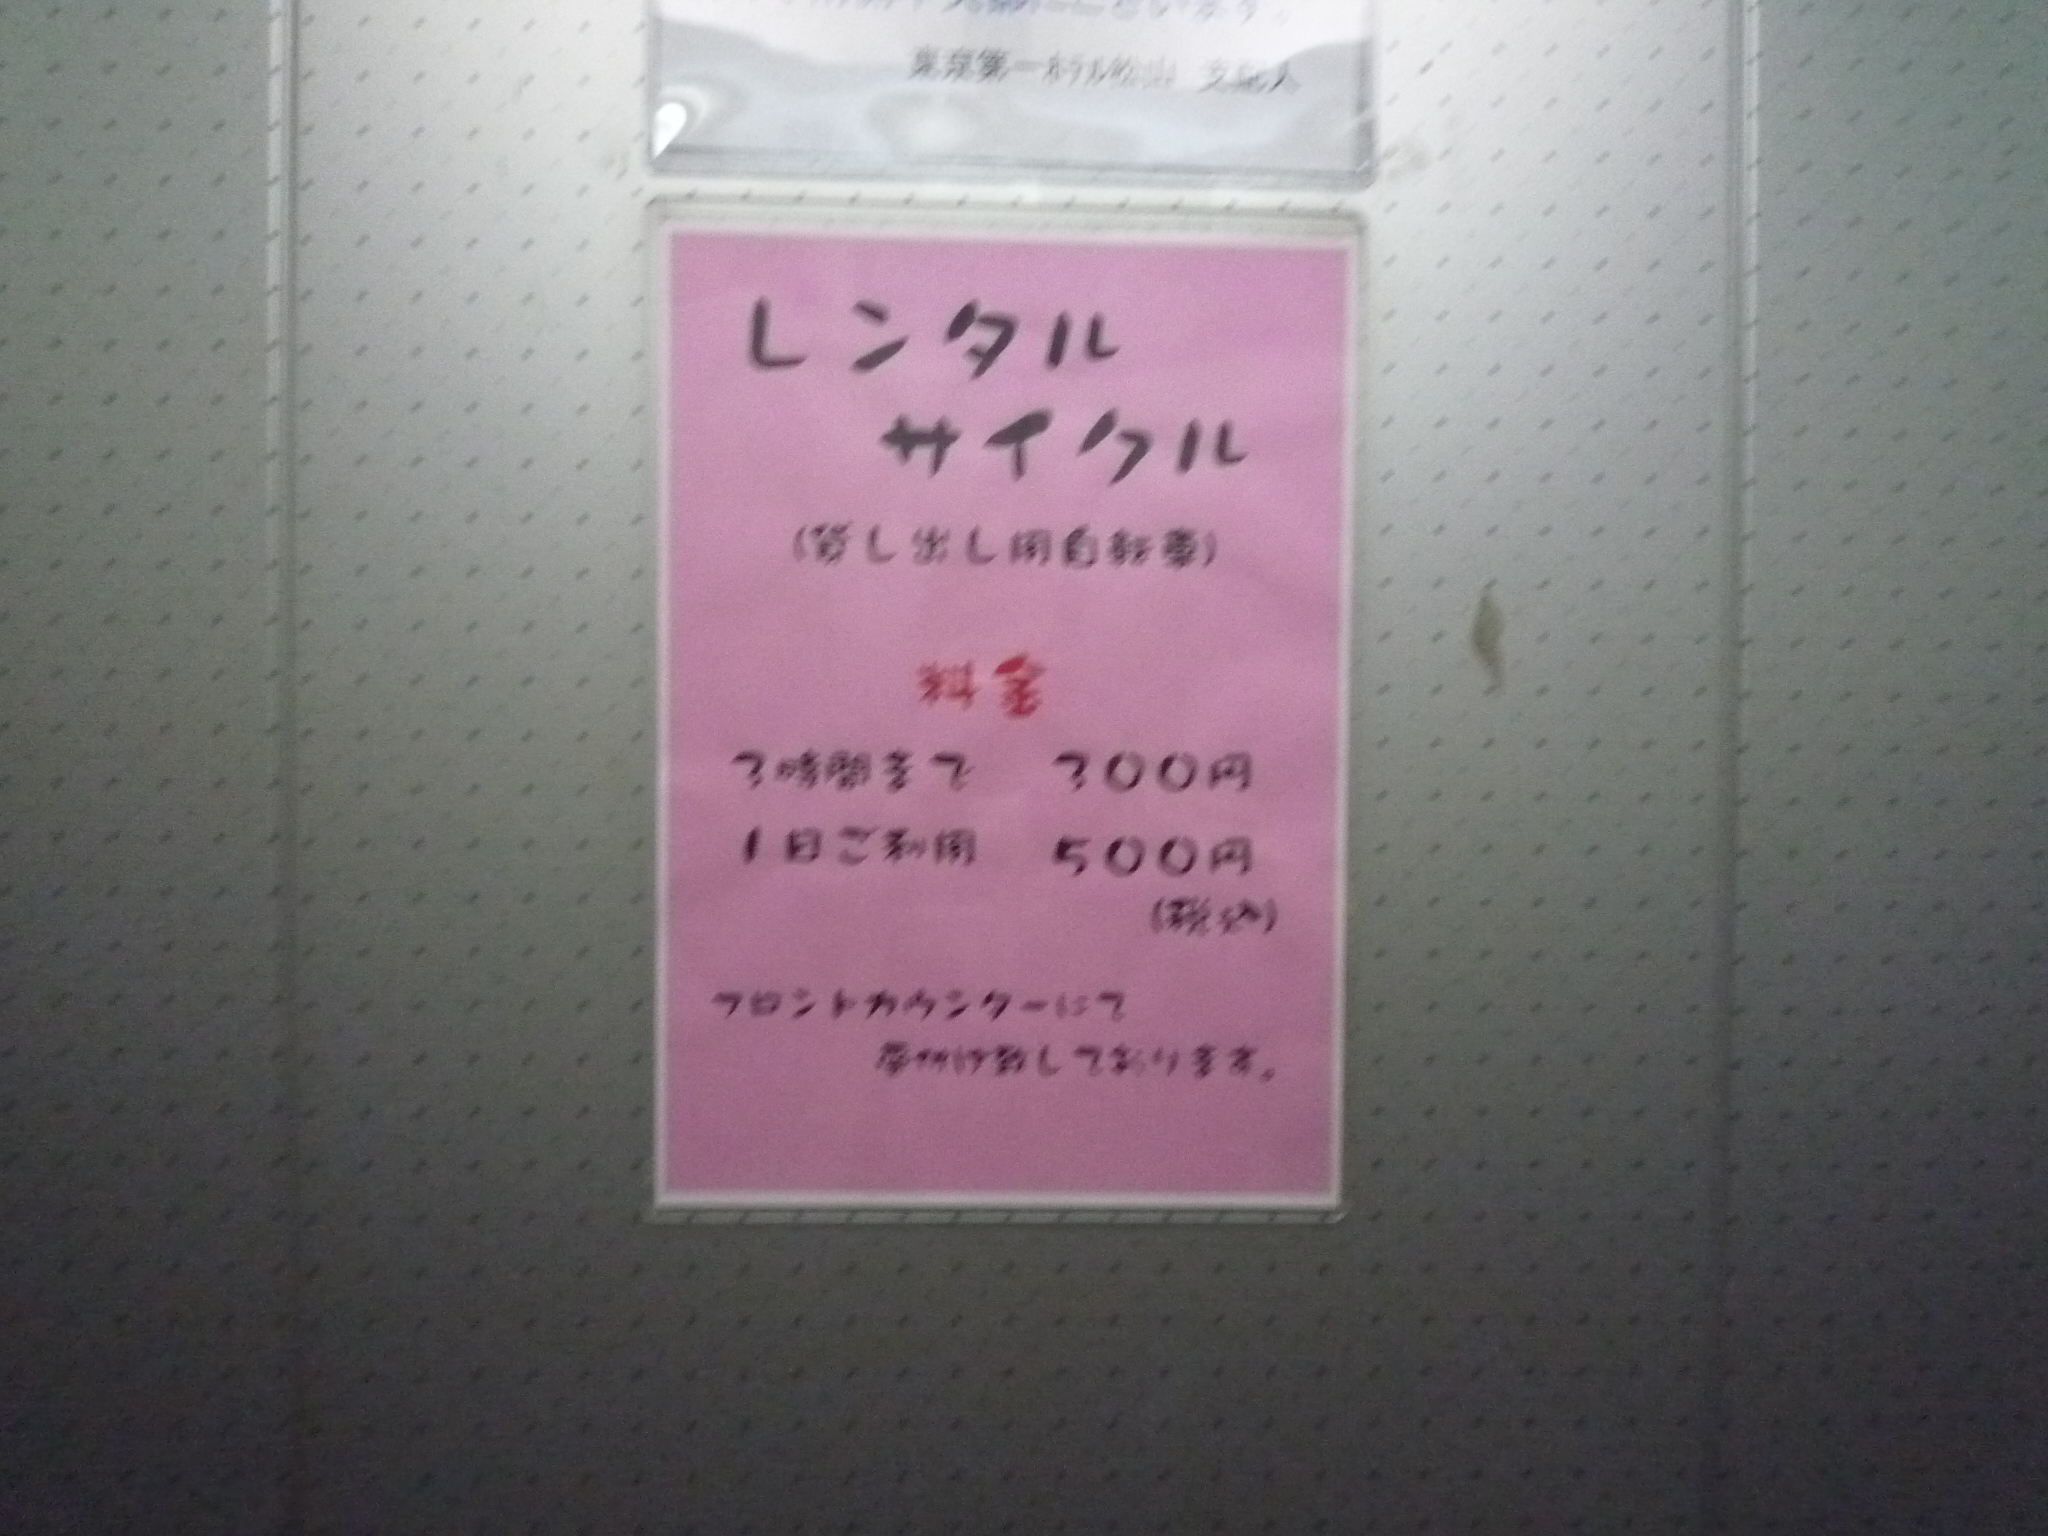 ございます。
東京第一ホテル松山 支配人
レンタル
サイクル
(貸し出し用自転車)
料金
3時間まで 300円
1日ご利用 500円
(税込)
フロントカウンターにて
受付け致しております。